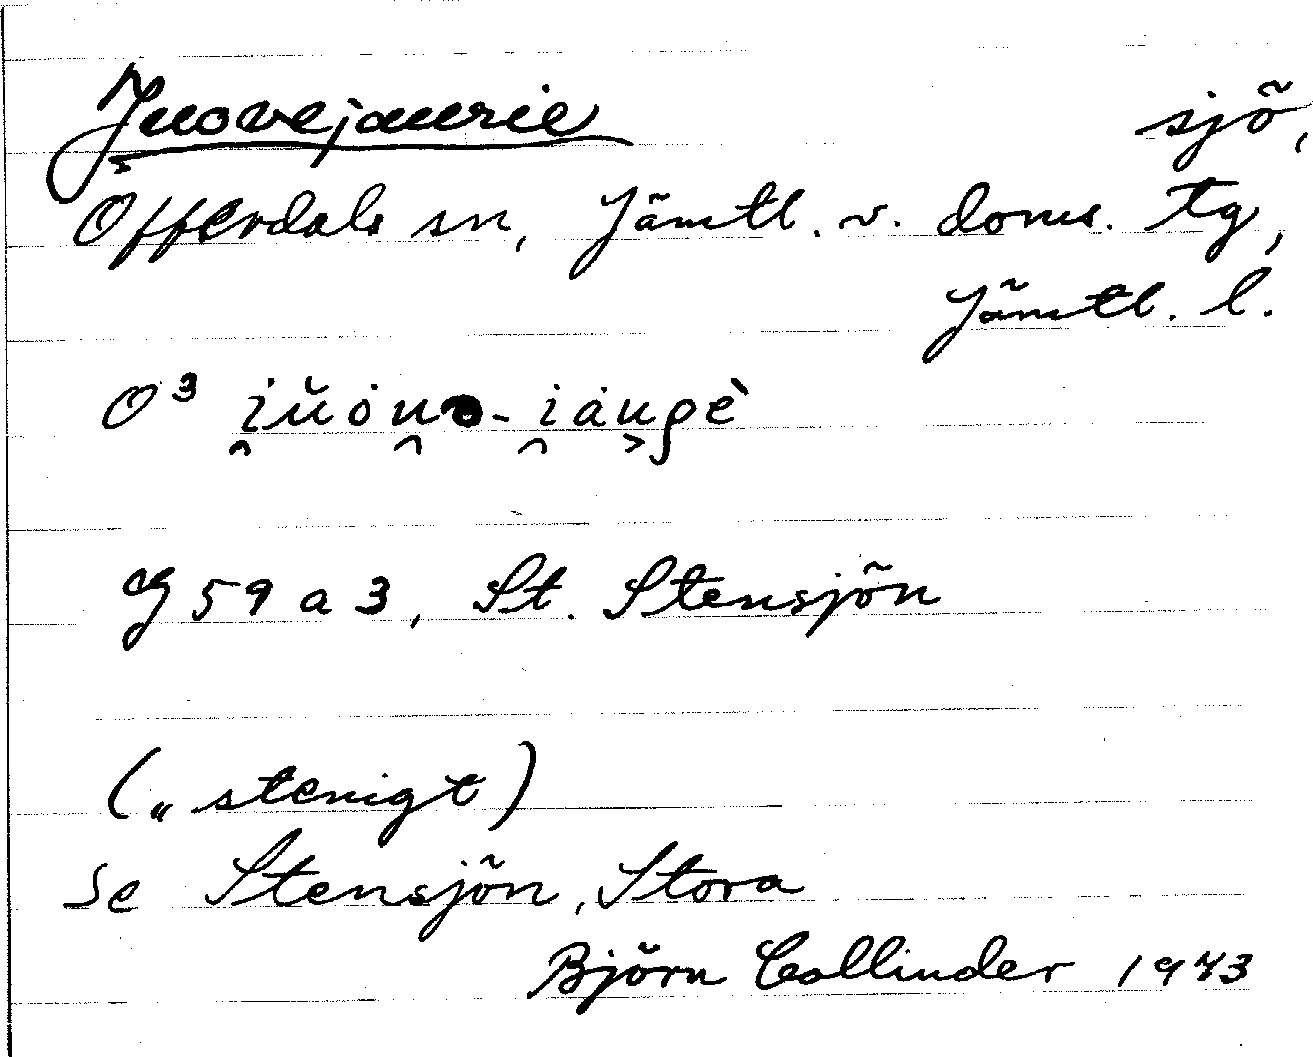 Juovejaurie sjö,
Offerdals sn, Jämtl. v. doms. tg,
Jämtl. l.
O³ i̯ŭȯu̯ - i̯ȧuρè
G 59 a 3, St. Stensjön
(„ stenigt)
Se Stensjön, Stora
Björn Collinder 1943